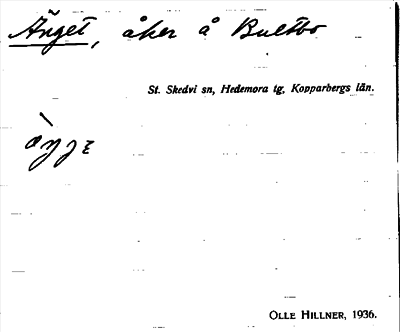 Änget, åker å Bultbo
St. Skedvi sn, Hedemora tg, Kopparbergs län.
OLLE HILLNER, 1936.